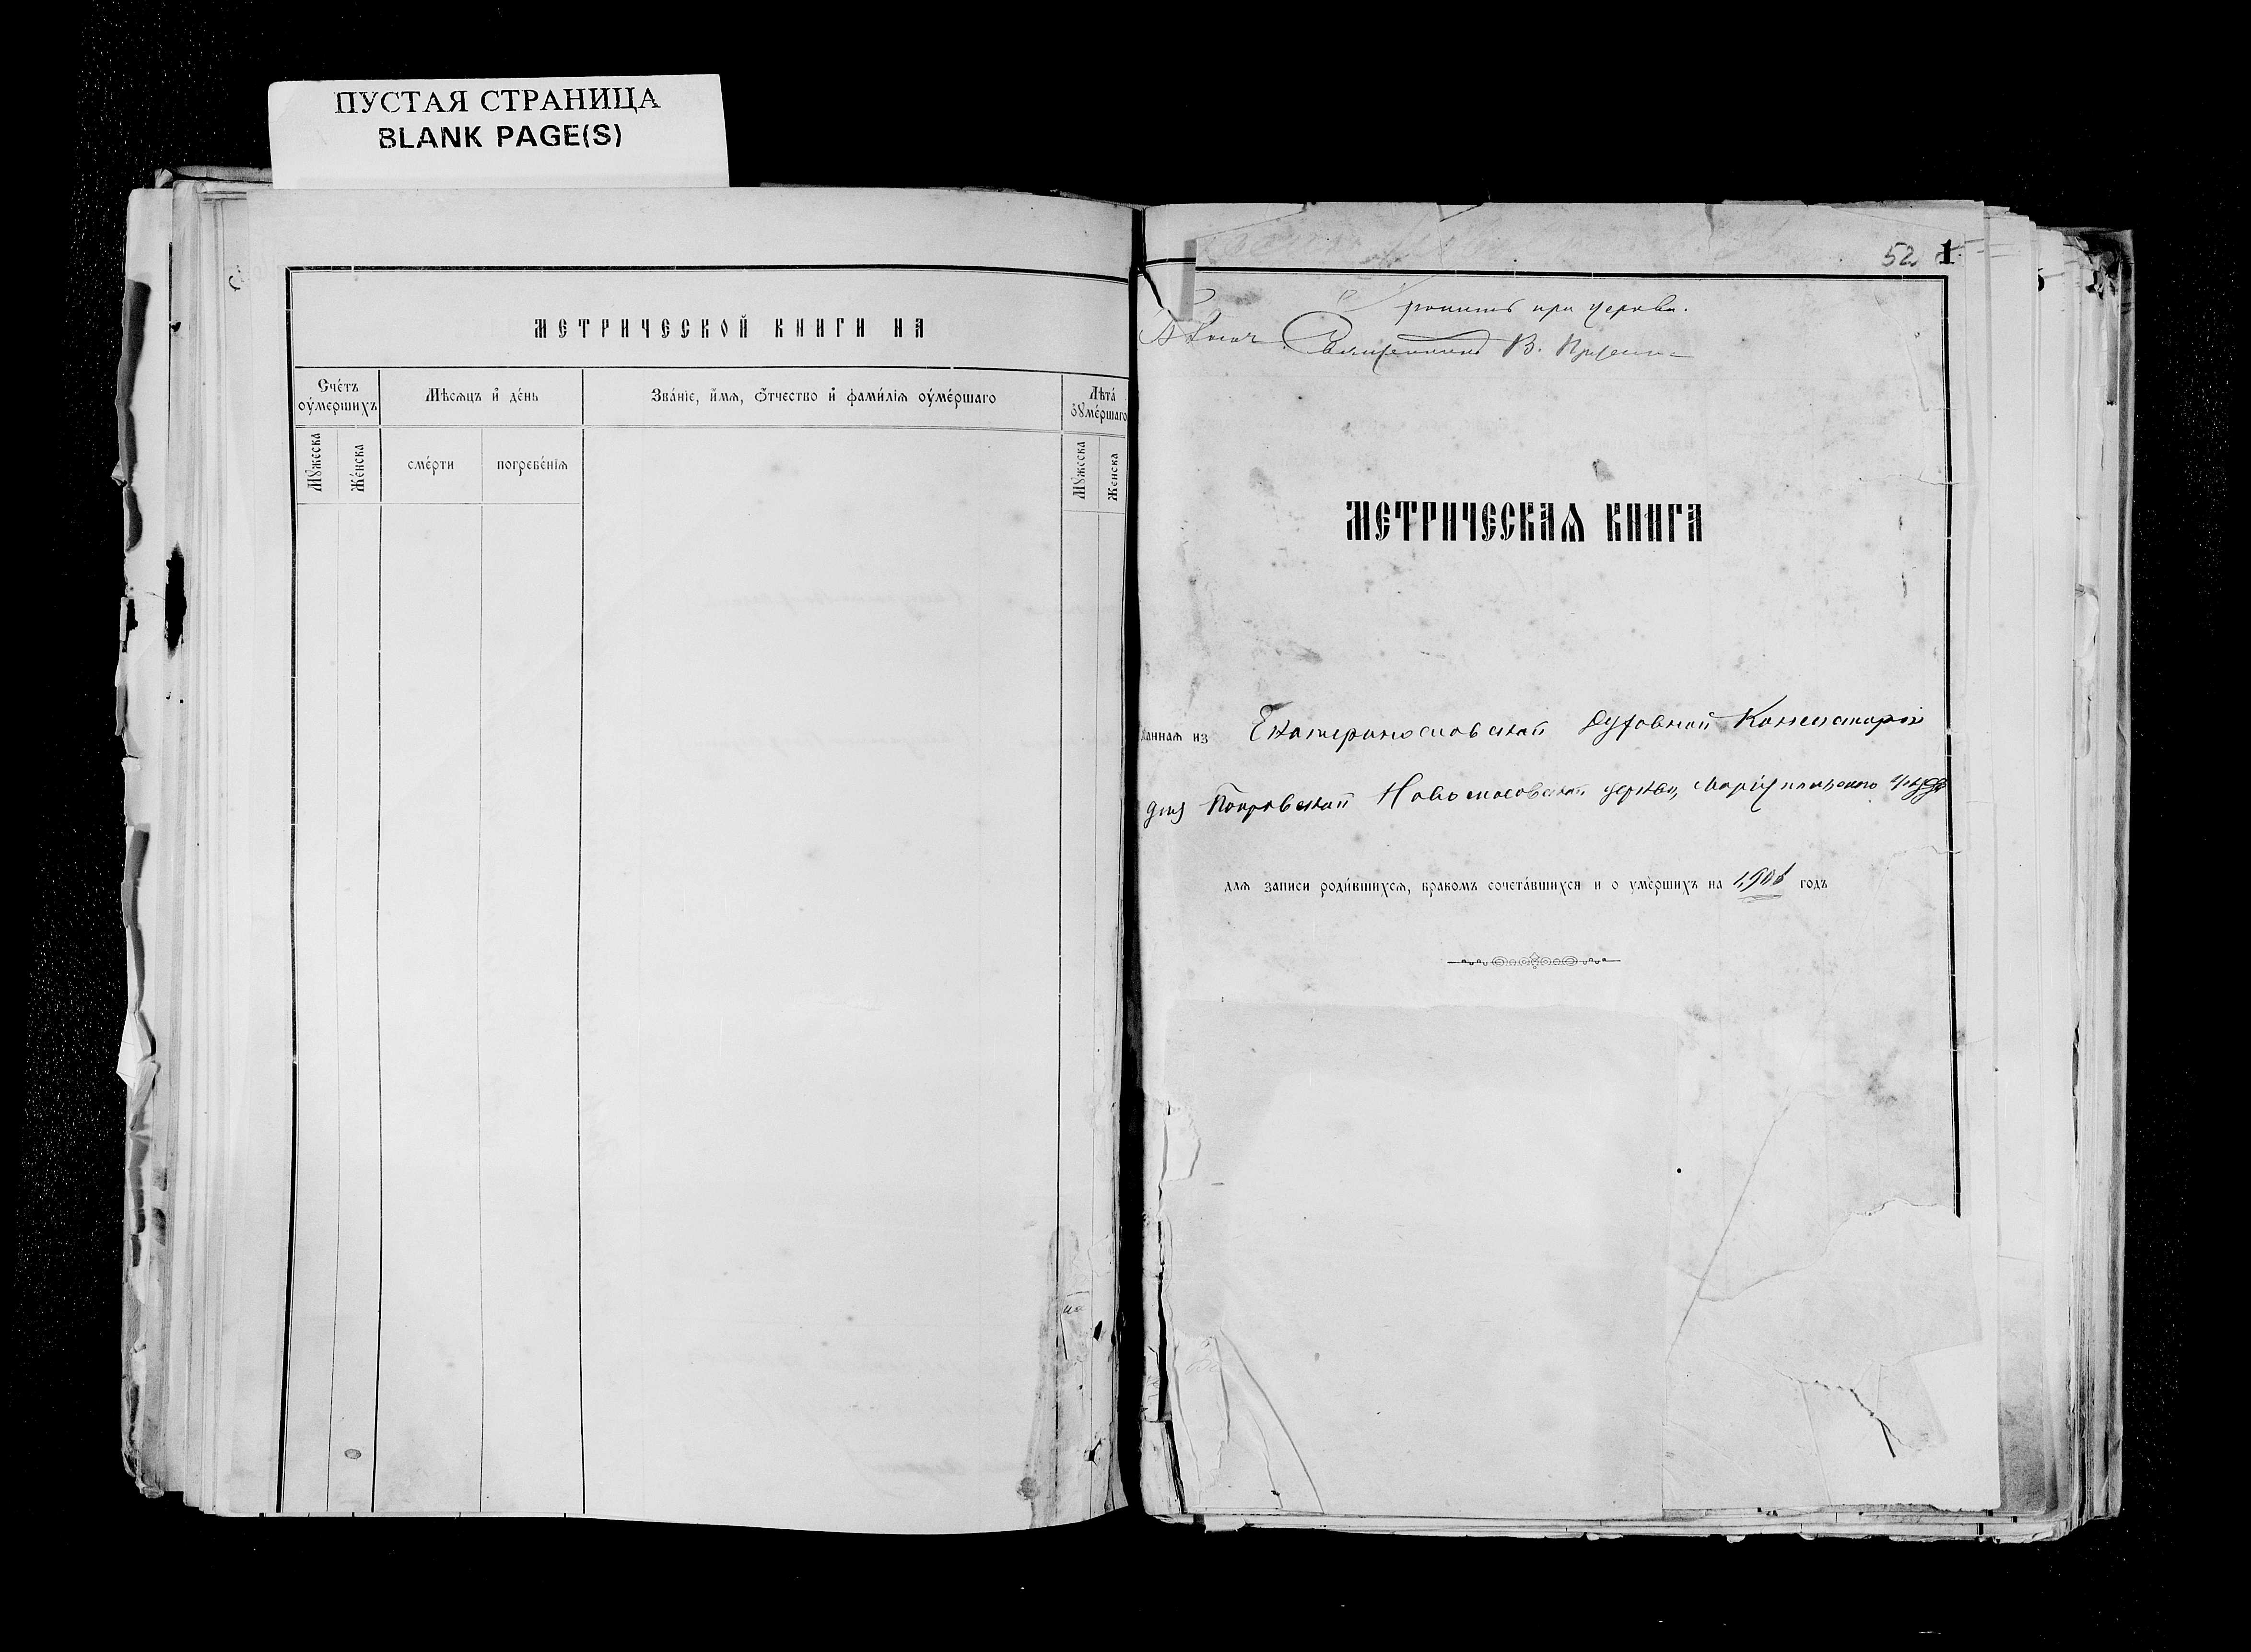 ПУСТАЯ СТРАНИЦА
BLANK PAGE(S)
МЕТРИЧЕСКОЙ КНИГИ НА
Сче́тъ ᲂу҆ме́ршихъ
Мѣ́сѧцъ и҆ де́нь
Зва́нїе, и҆́мѧ, ѻ҆́тчество и҆ фами́лїѧ ᲂу҆ме́ршаго
Лѣта̀ ᲂу҆ме́ршаго
Мꙋжеска
Же́нска
сме́рти
погребе́нїѧ
Мꙋжеска
Женска
52
1
хранить при церкви.
Священникъ В.
МЕТРИЧЕСКАѦ КНИГА
данная из Екатеринославской Духовной Консисторіи
для Покровской Новоспасовской церкви, Маріупольскаго уѣзда
для записи роди́вшихсѧ, бракомъ сочета́вшихся и о уме́ршихъ на годъ